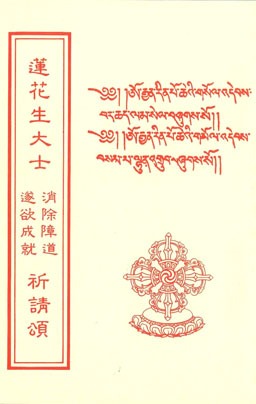 蓮花生大士
消除障道
遂欲成就
祈請頌
༄༅། །ཨོ་རྒྱན་རིན་པོ་ཆེའི་གསོལ་འདེབས་
བར་ཆད་ལམ་སེལ་བཞུགས་སོ། །
༄༅། །ཨོ་རྒྱན་རིན་པོ་ཆེའི་གསོལ་འདེབས་
བསམ་པ་ལྷུན་འགྲུབ་བཞུགས་སོ། །